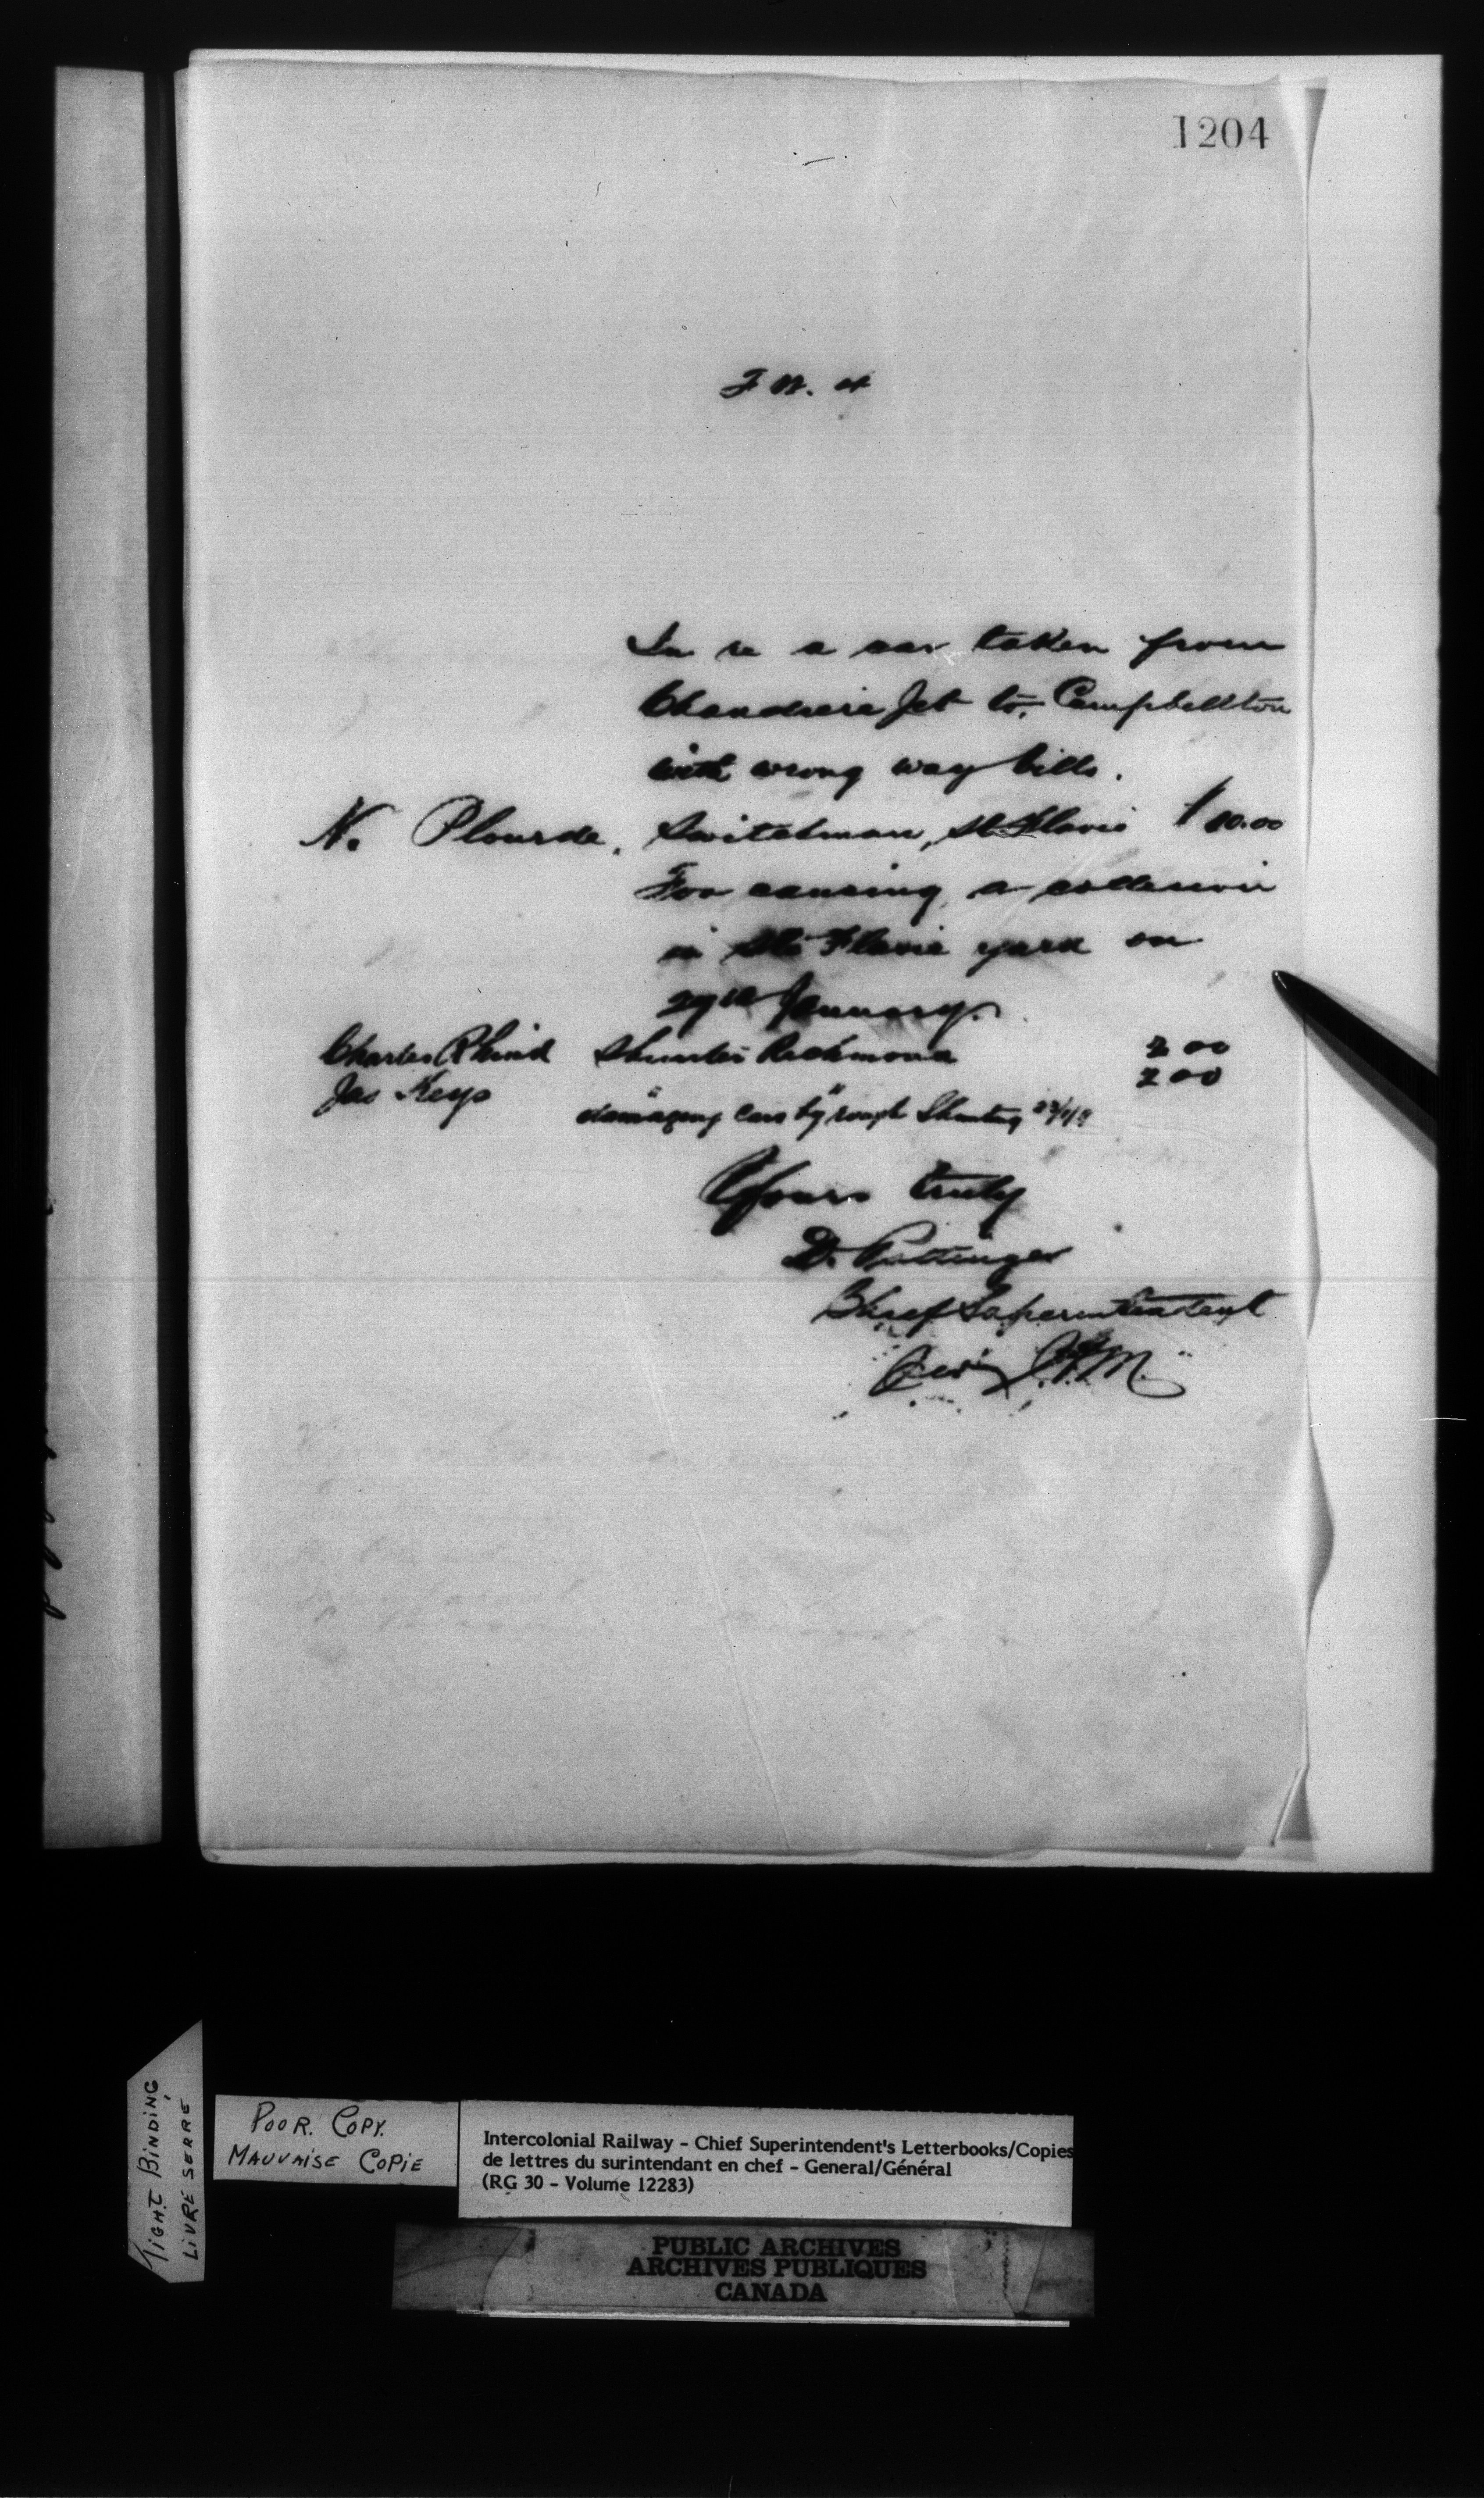 1204
In re a car taken from
Chaudiere Jct to Campbellton
with wrong way bills.
N. Plourde, Switchman, St Flavie $10.00
For causing a collision
in Ste Flavie yard on
29th January.
Charles Rhind Shunter Richmond 2 00
Jas Keys " " 2 00
damaging Cars by rough Shunting
Yours truly
D. Pottinger
Chief Superintendent
TIGHT BINDING
LIVRE SERRÉ
POOR. COPY.
MAUVAISE COPIE
Intercolonial Railway - Chief Superintendent's Letterbooks/Copies
de lettres du surintendant en chef - General/Général
(RG 30 - Volume 12283)
PUBLIC ARCHIVES
ARCHIVES PUBLIQUES
CANADA